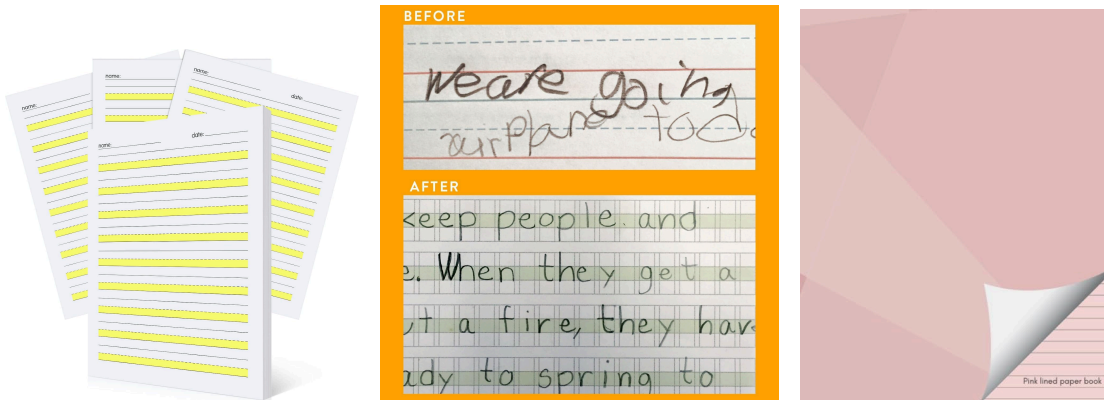 name:
name:
name:
date:
name:
date:
BEFORE
We are going
airplane
AFTER
keep people and
e. When they get a
a fire, they hav
ady to spring to
Pink lined paper book